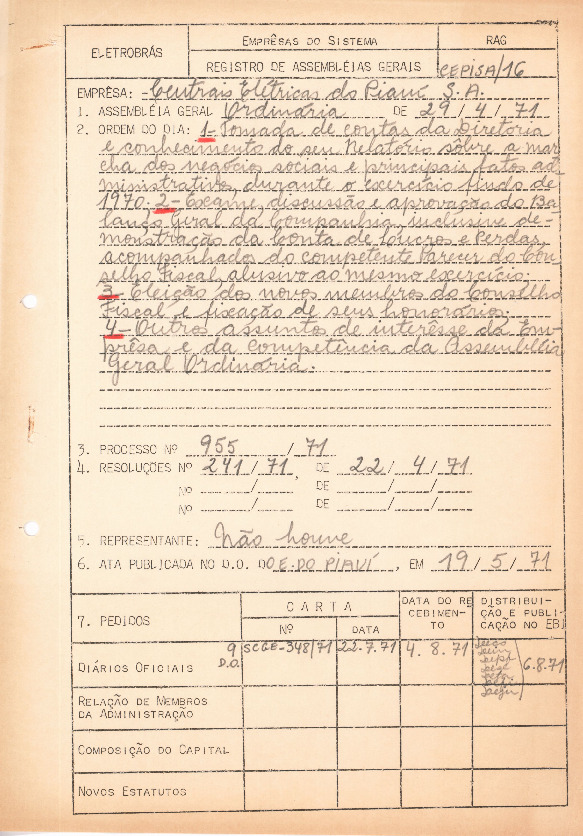 ELETROBRÁS
EMPRÊSAS DO SISTEMA
RAG
REGISTRO DE ASSEMBLÉIAS GERAIS
CEPISA/16
EMPRÊSA: -Centrais Elétricas do Piauí S.A.
1. ASSEMBLÉIA GERAL Ordinária DE 29/4/71
2. ORDEM DO DIA: 1-Tomada de contas da Diretoria
e conhecimento do seu Relatório sôbre a mar
cha dos negócios sociais e principais fatos ad-
ministrativos, durante o exercício findo de
1970. 2- Exame, discussão e aprovação do Ba-
lanço Geral da Companhia, inclusive de-
monstração da Conta de Lucros e Perdas,
acompanhados do competente Parecer do Con-
selho Fiscal, alusivo ao mesmo exercício.
3- Eleição dos novos membros do Conselho
Fiscal e fixação de seus honorários.
4- Outros assuntos de interêsse da Em-
prêsa e da competência da Assembléia
Geral Ordinária.
3. PROCESSO Nº 955 / 71
4. RESOLUÇÕES Nº 241/71, DE 22/4/71
Nº / DE / /
Nº / DE / /
5. REPRESENTANTE: Não houve
6. ATA PUBLICADA NO D.O. DO E.DO PIAUÍ, EM 19/5/71
7. PEDIDOS
CARTA
Nº
DATA
DATA DO RE
CEBIMEN-
TO
DISTRIBUI-
ÇÃO E PUBLI
CAÇÃO NO EBI
DIÁRIOS OFICIAIS
9
D.O.
SCGE-348/71
22.7.71
4.8.71
6.8.71
RELAÇÃO DE MEMBROS
DA ADMINISTRAÇÃO
COMPOSIÇÃO DO CAPITAL
NOVOS ESTATUTOS